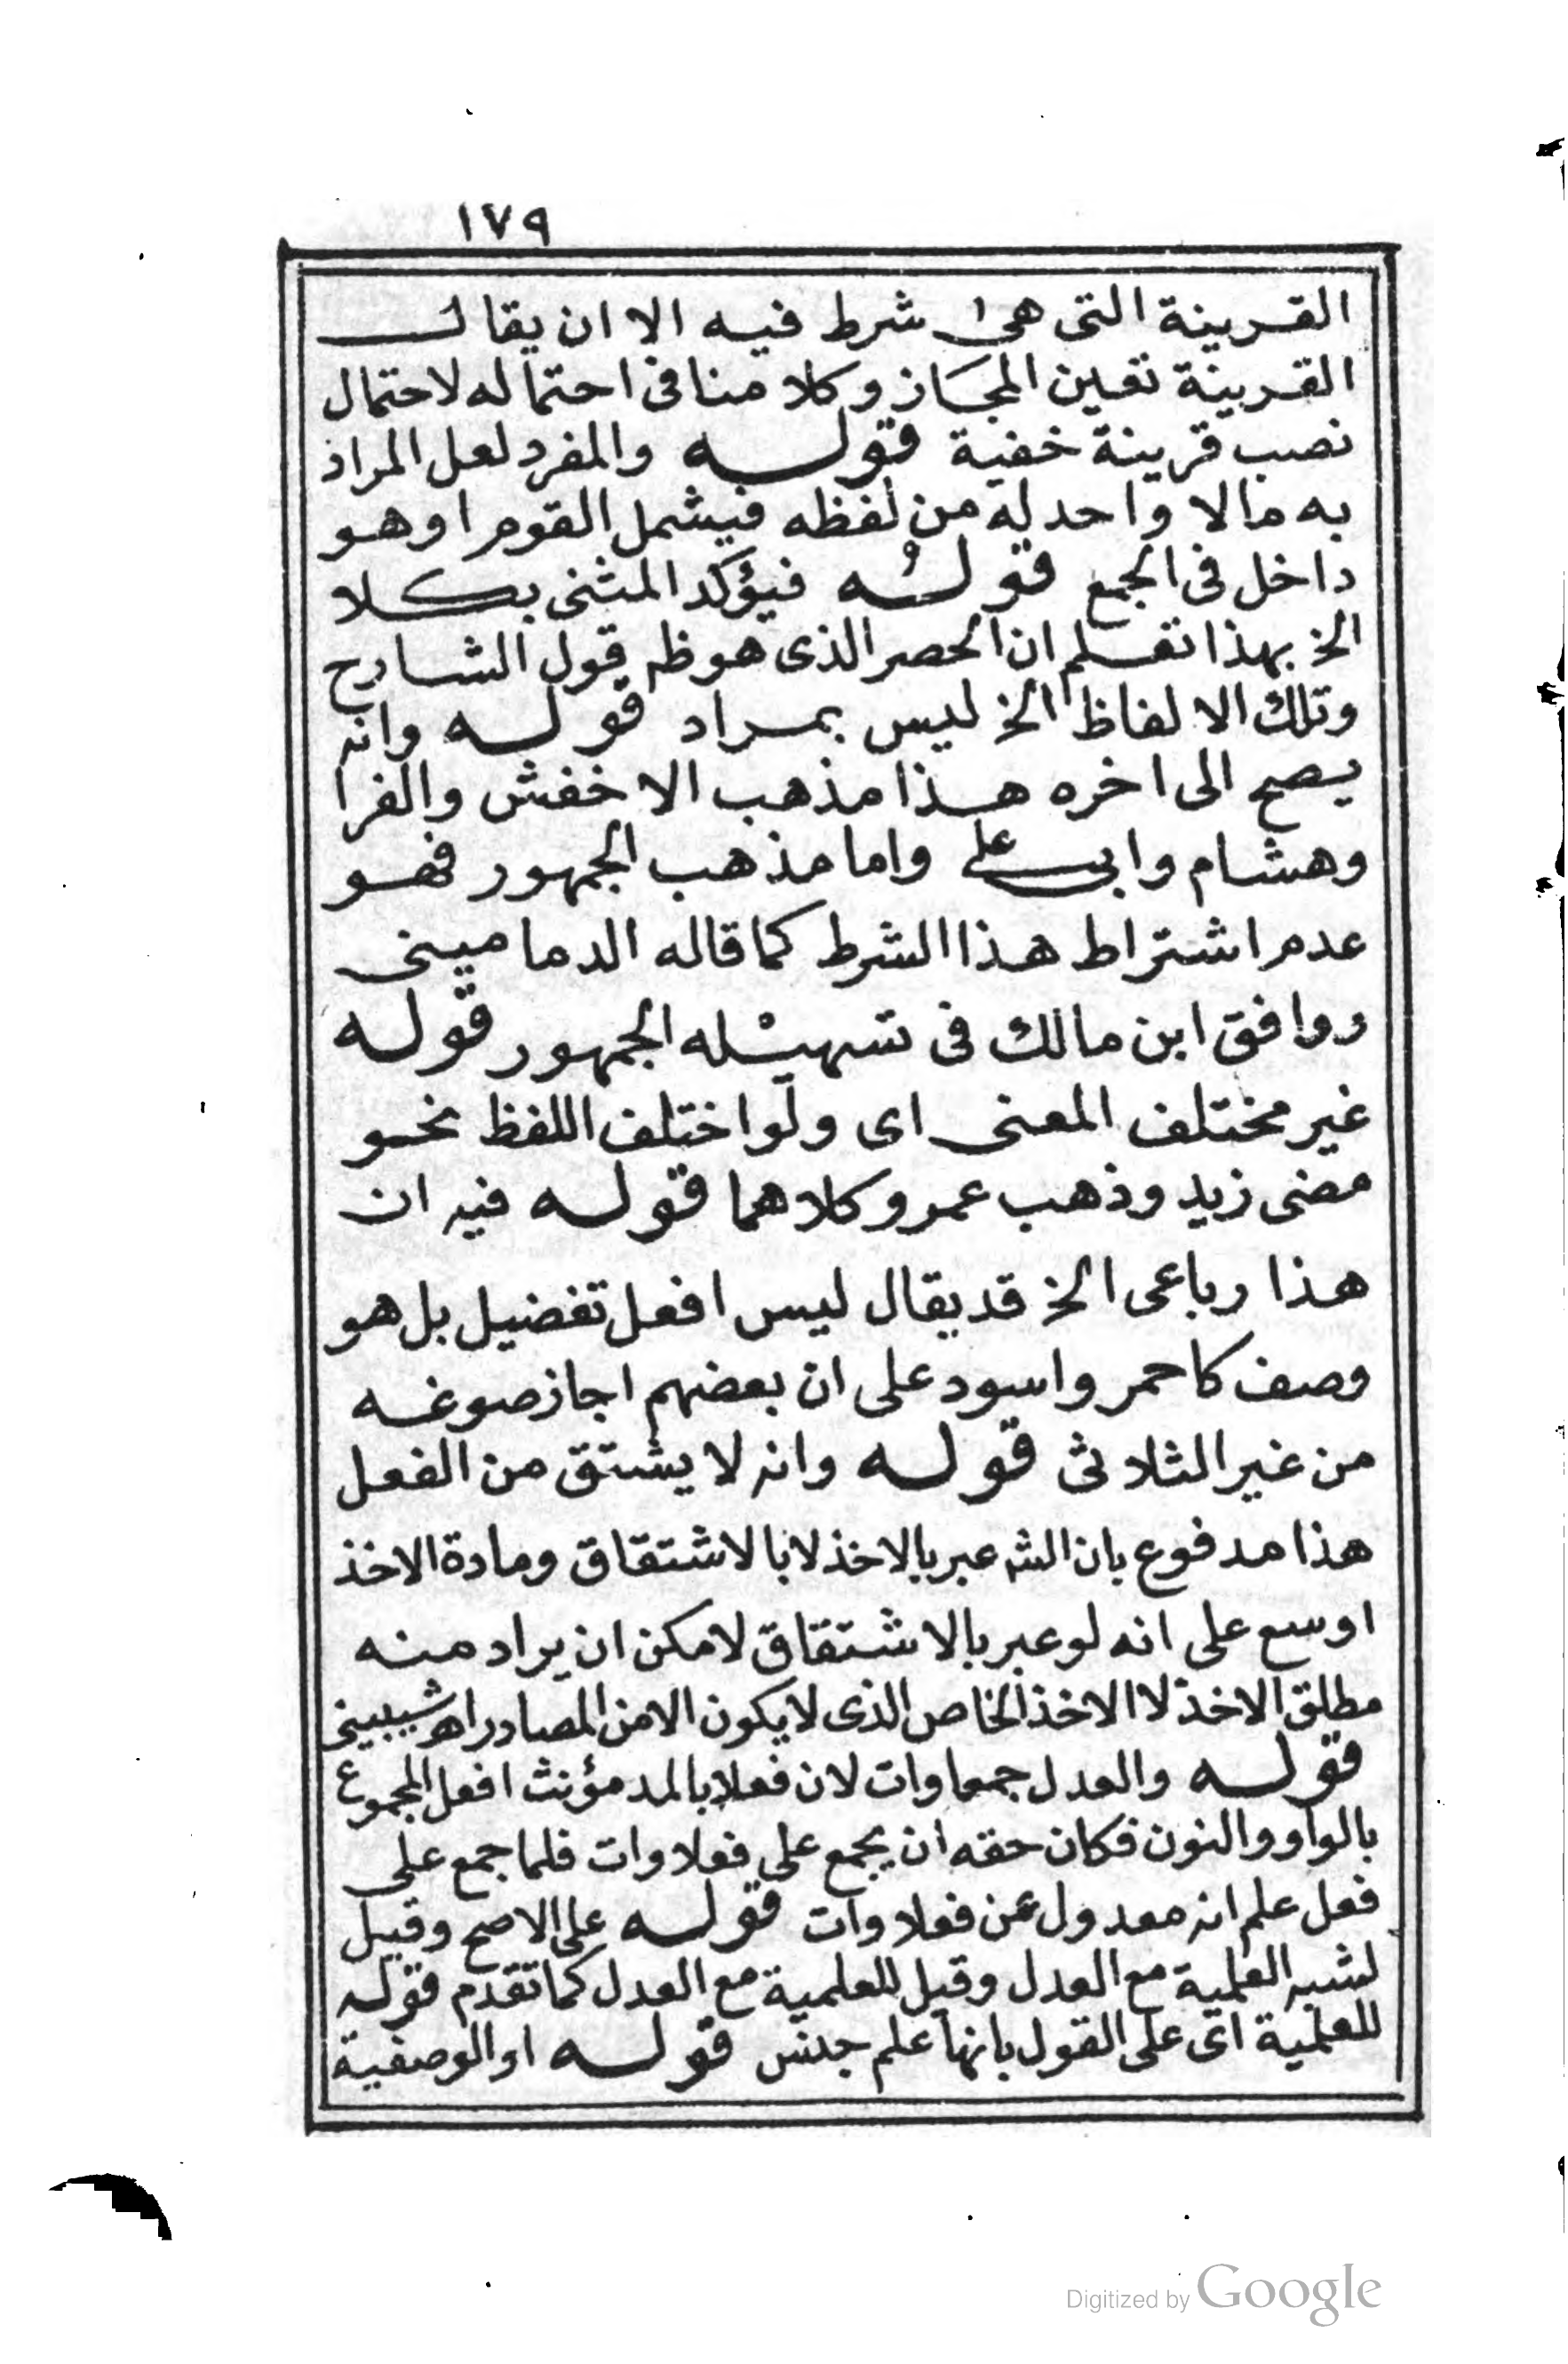 ١٧٩
القرينة التى هى شرط فيه الا ان يقال
القرينة تعين المجاز وكلا منا فى احتماله لاحتمال
نصب قرينة خفية قوله والمفرد لعل المراد
به مالا واحد له من لفظه فيشمل القوم او هو
داخل فى الجمع قوله فيؤكد المثنى بكلا
الخ بهذا تعلم ان الحصر الذى هو ظه قول الشارح
وتلك الا لفاظ الخ ليس بمراد قوله وانه
يصح الى اخره هذا مذهب الا خفش والفرا
وهشام وابى على واما مذهب الجمهور فهو
عدم اشتراط هذا الشرط كما قاله الدما مينى
ووافق ابن مالك فى تسهيله الجمهور قوله
غير مختلف المعنى اى ولو اختلف اللفظ نحو
مضى زيد وذهب عمرو كلاهما قوله فيه ان
هذا رباعى الخ قد يقال ليس افعل تفضيل بل هو
وصف كاحمر واسود على ان بعضهم اجاز صوغه
من غير الثلاثى قوله وانه لا يشتق من الفعل
هذا مدفوع بان الشه عبر بالاخذ لا بالاشتقاق ومادة الاخذ
اوسع على انه لو عبر بالاشتقاق لامكن ان يراد منه
مطلق الاخذ لا الاخذ الخاص الذى لا يكون الا من المصادر اهو شيبينى
قوله والعدل جمعاوات لان فعلا بالمد مؤنث افعل المجموع
بالواو والنون فكان حقه ان يجمع على فعلاوات فلما جمع على
فعل علم انه معدول عن فعلاوات قوله على الاصح وقيل
لشبه العلمية مع العدل وقيل للعلمية مع العدل كما تقدم قوله
للعلمية اى على القول بانها علم جنس قوله او الوصفية
Digitized by Google